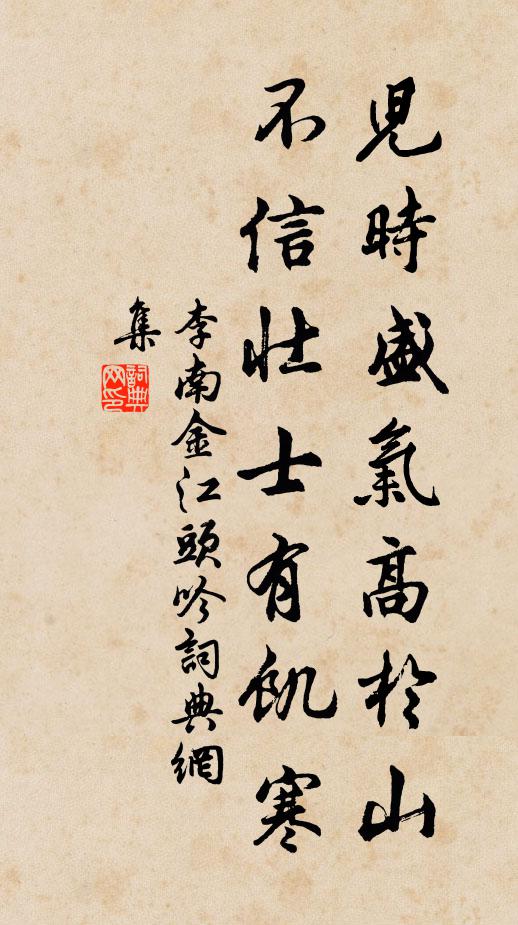 兒時盛氣高於山
不信壯士有飢寒
李南金江頭吟詞典網
集
詞典
网印